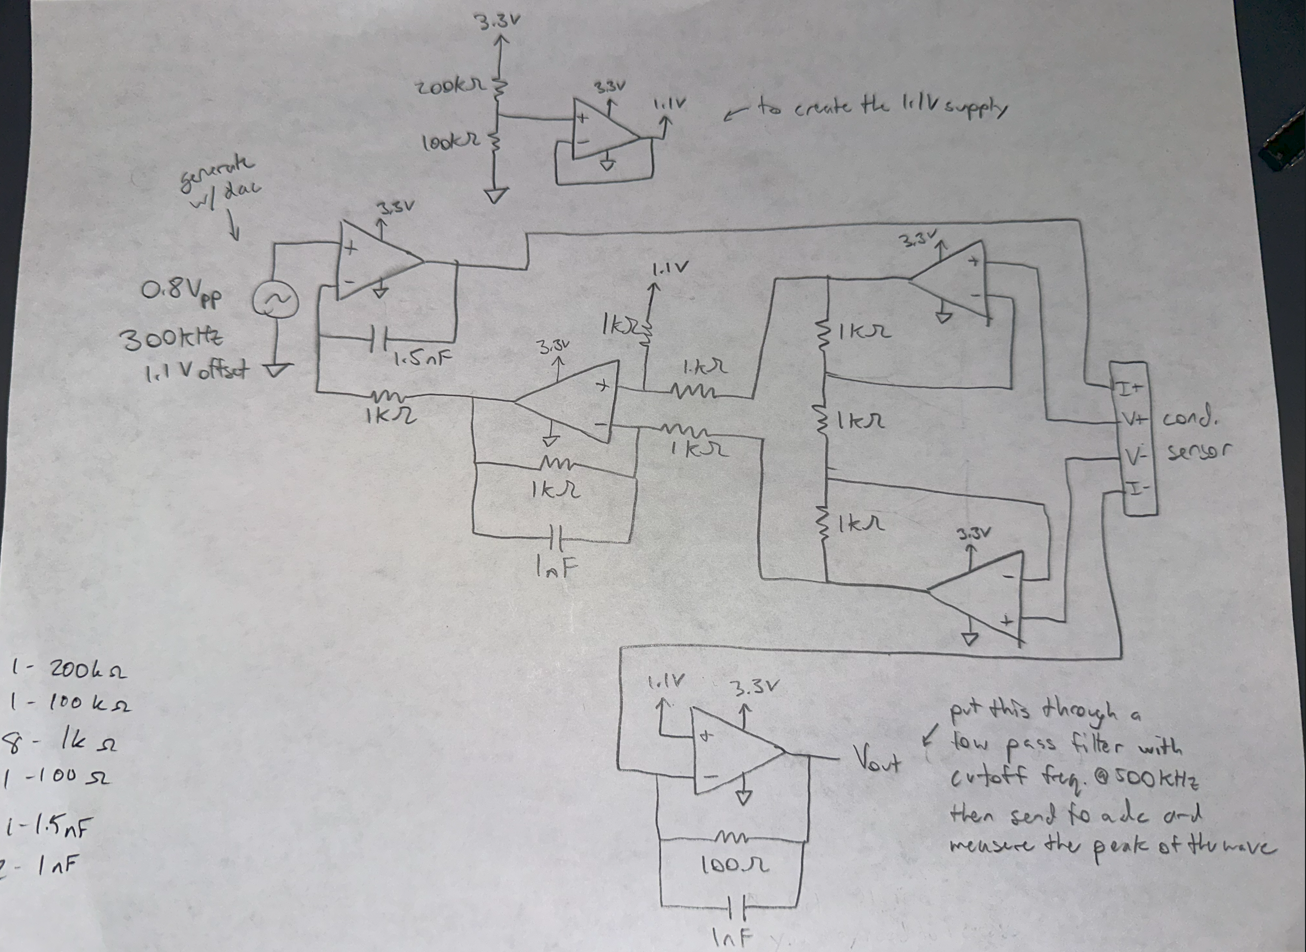 3.3V
200kΩ
3.3V
1.1V
100kΩ
+
-
← to create the 1.1V supply
generate
w/ dac
3.3V
+
-
0.8Vpp
300kHz
1.1V offset
1.5nF
1kΩ
1.1V
1kΩ
3.3V
1kΩ
+
-
1kΩ
1kΩ
1nF
3.3V
+
-
1kΩ
1kΩ
1kΩ
I+
V+
V-
I-
cond.
sensor
3.3V
-
+
1.1V
3.3V
+
-
Vout
100Ω
1nF
put this through a
low pass filter with
cutoff freq. @ 500kHz
then send to adc and
measure the peak of the wave
1 - 200kΩ
1 - 100kΩ
8 - 1kΩ
1 - 100Ω
1 - 1.5nF
2 - 1nF